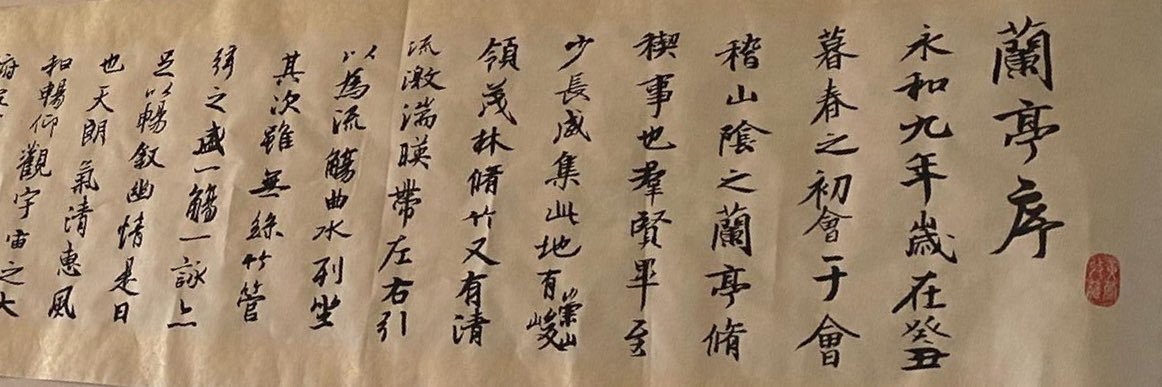 蘭亭序
永和九年歲在癸丑
暮春之初會于會
稽山陰之蘭亭脩
稧事也羣賢畢至
少長咸集此地有崇山峻
領茂林脩竹又有清
流激湍暎帶左右引
以為流觴曲水列坐
其次雖無絲竹管
弦之盛一觴一詠亦
足以暢敘幽情是日
也天朗氣清惠風
和暢仰觀宇宙之大